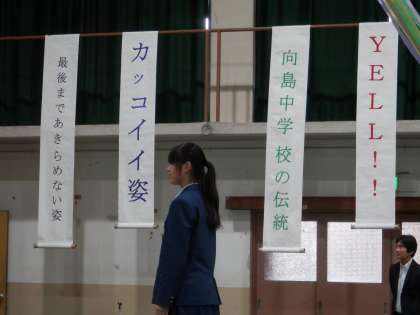 最後まであきらめない姿
カッコイイ姿
向島中学校の伝統
YELL!!